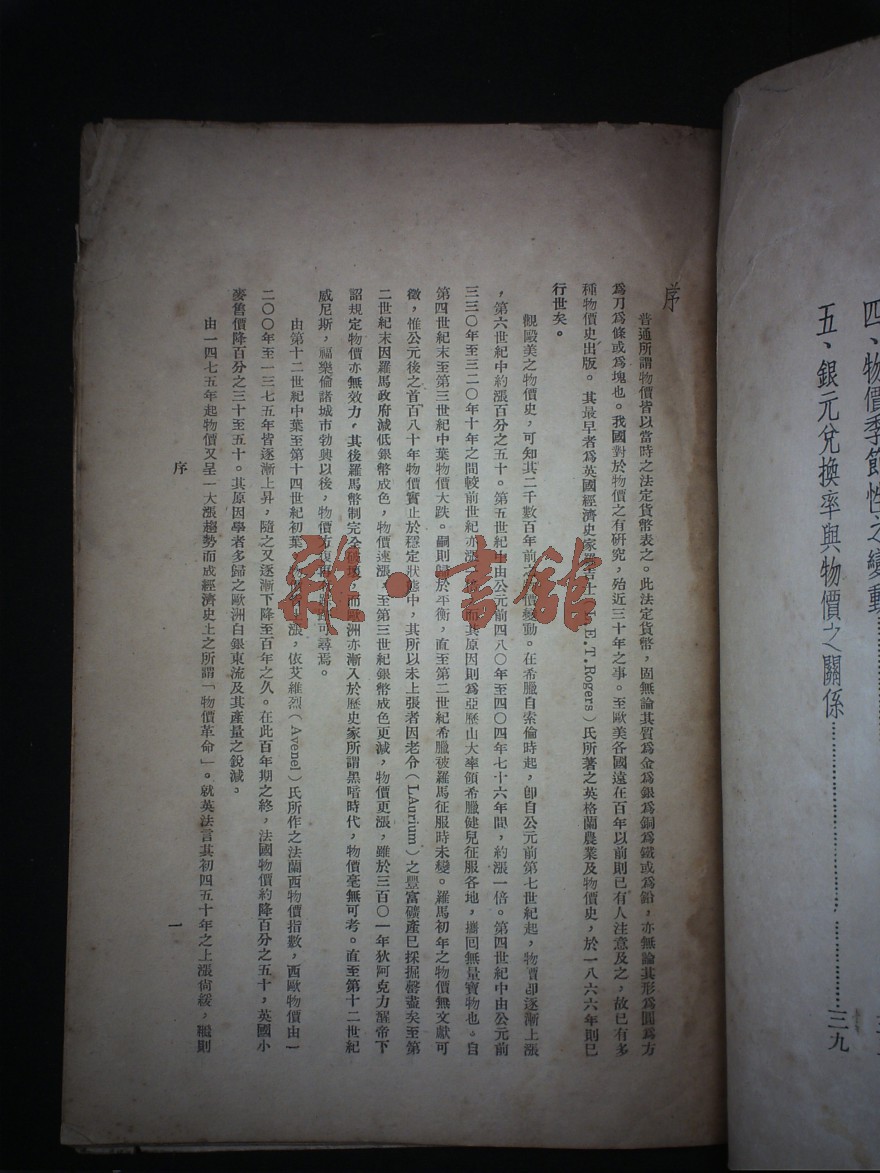 四、物價季節性之變動
五、銀元兌換率與物價之關係……………………三九
序
普通所謂物價皆以當時之法定貨幣表之。此法定貨幣，固無論其質為金為銀為銅為鐵或為鉛，亦無論其形為圓為方
為刀為條或為塊也。我國對於物價之有研究，殆近三十年之事。至歐美各國遠在百年以前則已有人注意及之，故已有多
種物價史出版。其最早者為英國經濟史家羅吉士（E.T.Rogers）氏所著之英格蘭農業及物價史，於一八六六年則已
行世矣。
觀歐美之物價史，可知其二千數百年前之物價變動。在希臘自索倫時起，卽自公元前第七世紀起，物價卽逐漸上漲
，第六世紀中約漲百分之五十。第五世紀中由公元前四八〇年至四〇四年七十六年間，約漲一倍。第四世紀中由公元前
三三〇年至三二〇年十年之間較前世紀亦漲而其原因則為亞歷山大率領希臘健兒征服各地，攜回無量寶物也。自
第四世紀末至第三世紀中葉物價大跌。嗣則歸於平衡，直至第二世紀希臘被羅馬征服時未變。羅馬初年之物價無文獻可
徵，惟公元後之首百八十年物價實止於穩定狀態中，其所以未上張者因老令（LAurium）之豐富礦產已採掘罄盡矣至第
二世紀末因羅馬政府減低銀幣成色，物價速漲，至第三世紀銀幣成色更減，物價更漲，雖於三百〇一年狄阿克力醒帝下
詔規定物價亦無效力，其後羅馬幣制完全破壞，而歐洲亦漸入於歷史家所謂黑暗時代，物價毫無可考。直至第十二世紀
威尼斯，福樂倫諸城市勃興以後，物價方復再有可尋焉。
由第十二世紀中葉至第十四世紀初葉物價上漲，依艾維烈（Avenel）氏所作之法蘭西物價指數，西歐物價由一
二〇〇年至一三七五年皆逐漸上昇，隨之又逐漸下降至百年之久。在此百年期之終，法國物價約降百分之五十，英國小
麥舊價降百分之三十至五十。其原因學者多歸之歐洲白銀東流及其產量之銳減。
由一四七五年起物價又呈一大漲趨勢而成經濟史上之所謂「物價革命」。就英法言其初四五十年之上漲尙緩，繼則
序
一
雜·書館